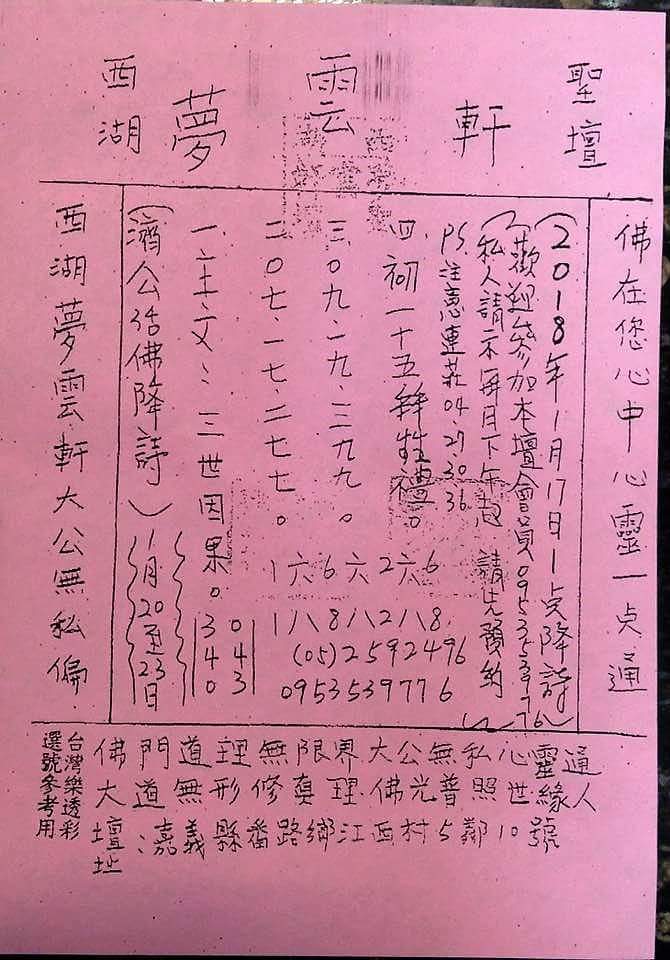 西湖夢雲軒聖壇
佛在您心中心靈一点通
(2018年1月17日1点降詩)
(歡迎參加本壇會員0953539776)
(私人請示每月下午起 請先預約)
PS.注意連莊04.27.30.36
四.初一十五拜牲禮。
三.0九.一九.三九九。
二.0七.一七.二七七。
一.主文:三世因果。
043
340
(濟公活佛降詩)
1月20至23日
1六6六2六6
1八8八2八8
(05)2592496
0953539776
西湖夢雲軒大公無私偏.
佛門道理無限界大公無私心靈通
大道無形修真理.佛光普照世緣人
壇址:嘉義縣番路鄉江西村5鄰10號
台灣樂透彩
選號參考用